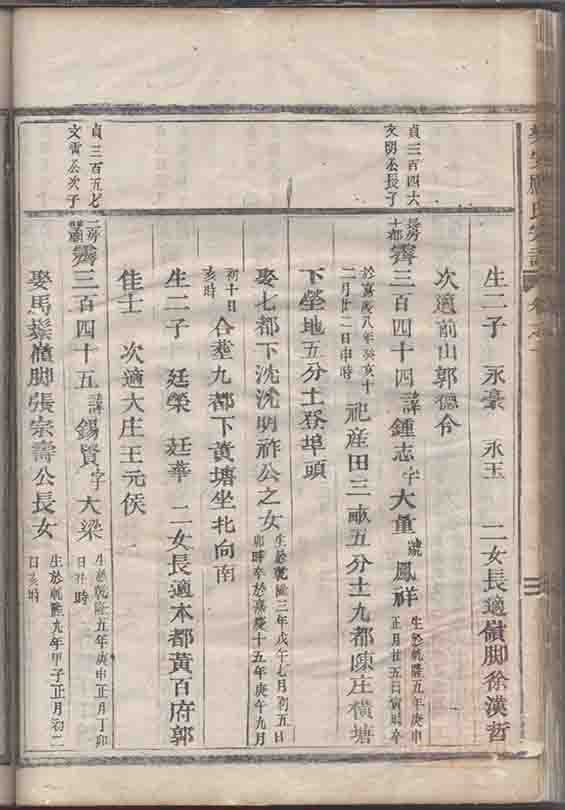 生二子 永豪 永玉 二女長適嶺脚徐漢哲
次適前山郭德令
貞三百四六
文明公長子
霽三百四十四諱鍾志字大董號鳳祥 生於乾隆五年庚申
正月廿五日寅時卒
於嘉慶八年癸亥十
二月廿二日申時
祀產田三畝五分土九都陳庄橫塘
下塋地五分土登埠頭
娶七都下沈沈明祚公之女 生於乾隆三年戊午七月初五日
卯時卒於嘉慶十五年庚午九月
初十日
亥時
合塟九都下黃塘坐北向南
生二子 廷榮 廷華 二女長適本都黃百府郭
佳士 次適大庄王元侯
貞三百五七
文雷公次子
霽三百四十五諱錫賢字大梁 生於乾隆五年庚申正月丁卯
日 時
娶馬鬃嶺脚張宗壽公長女 生於乾隆九年甲子正月初二
日亥時